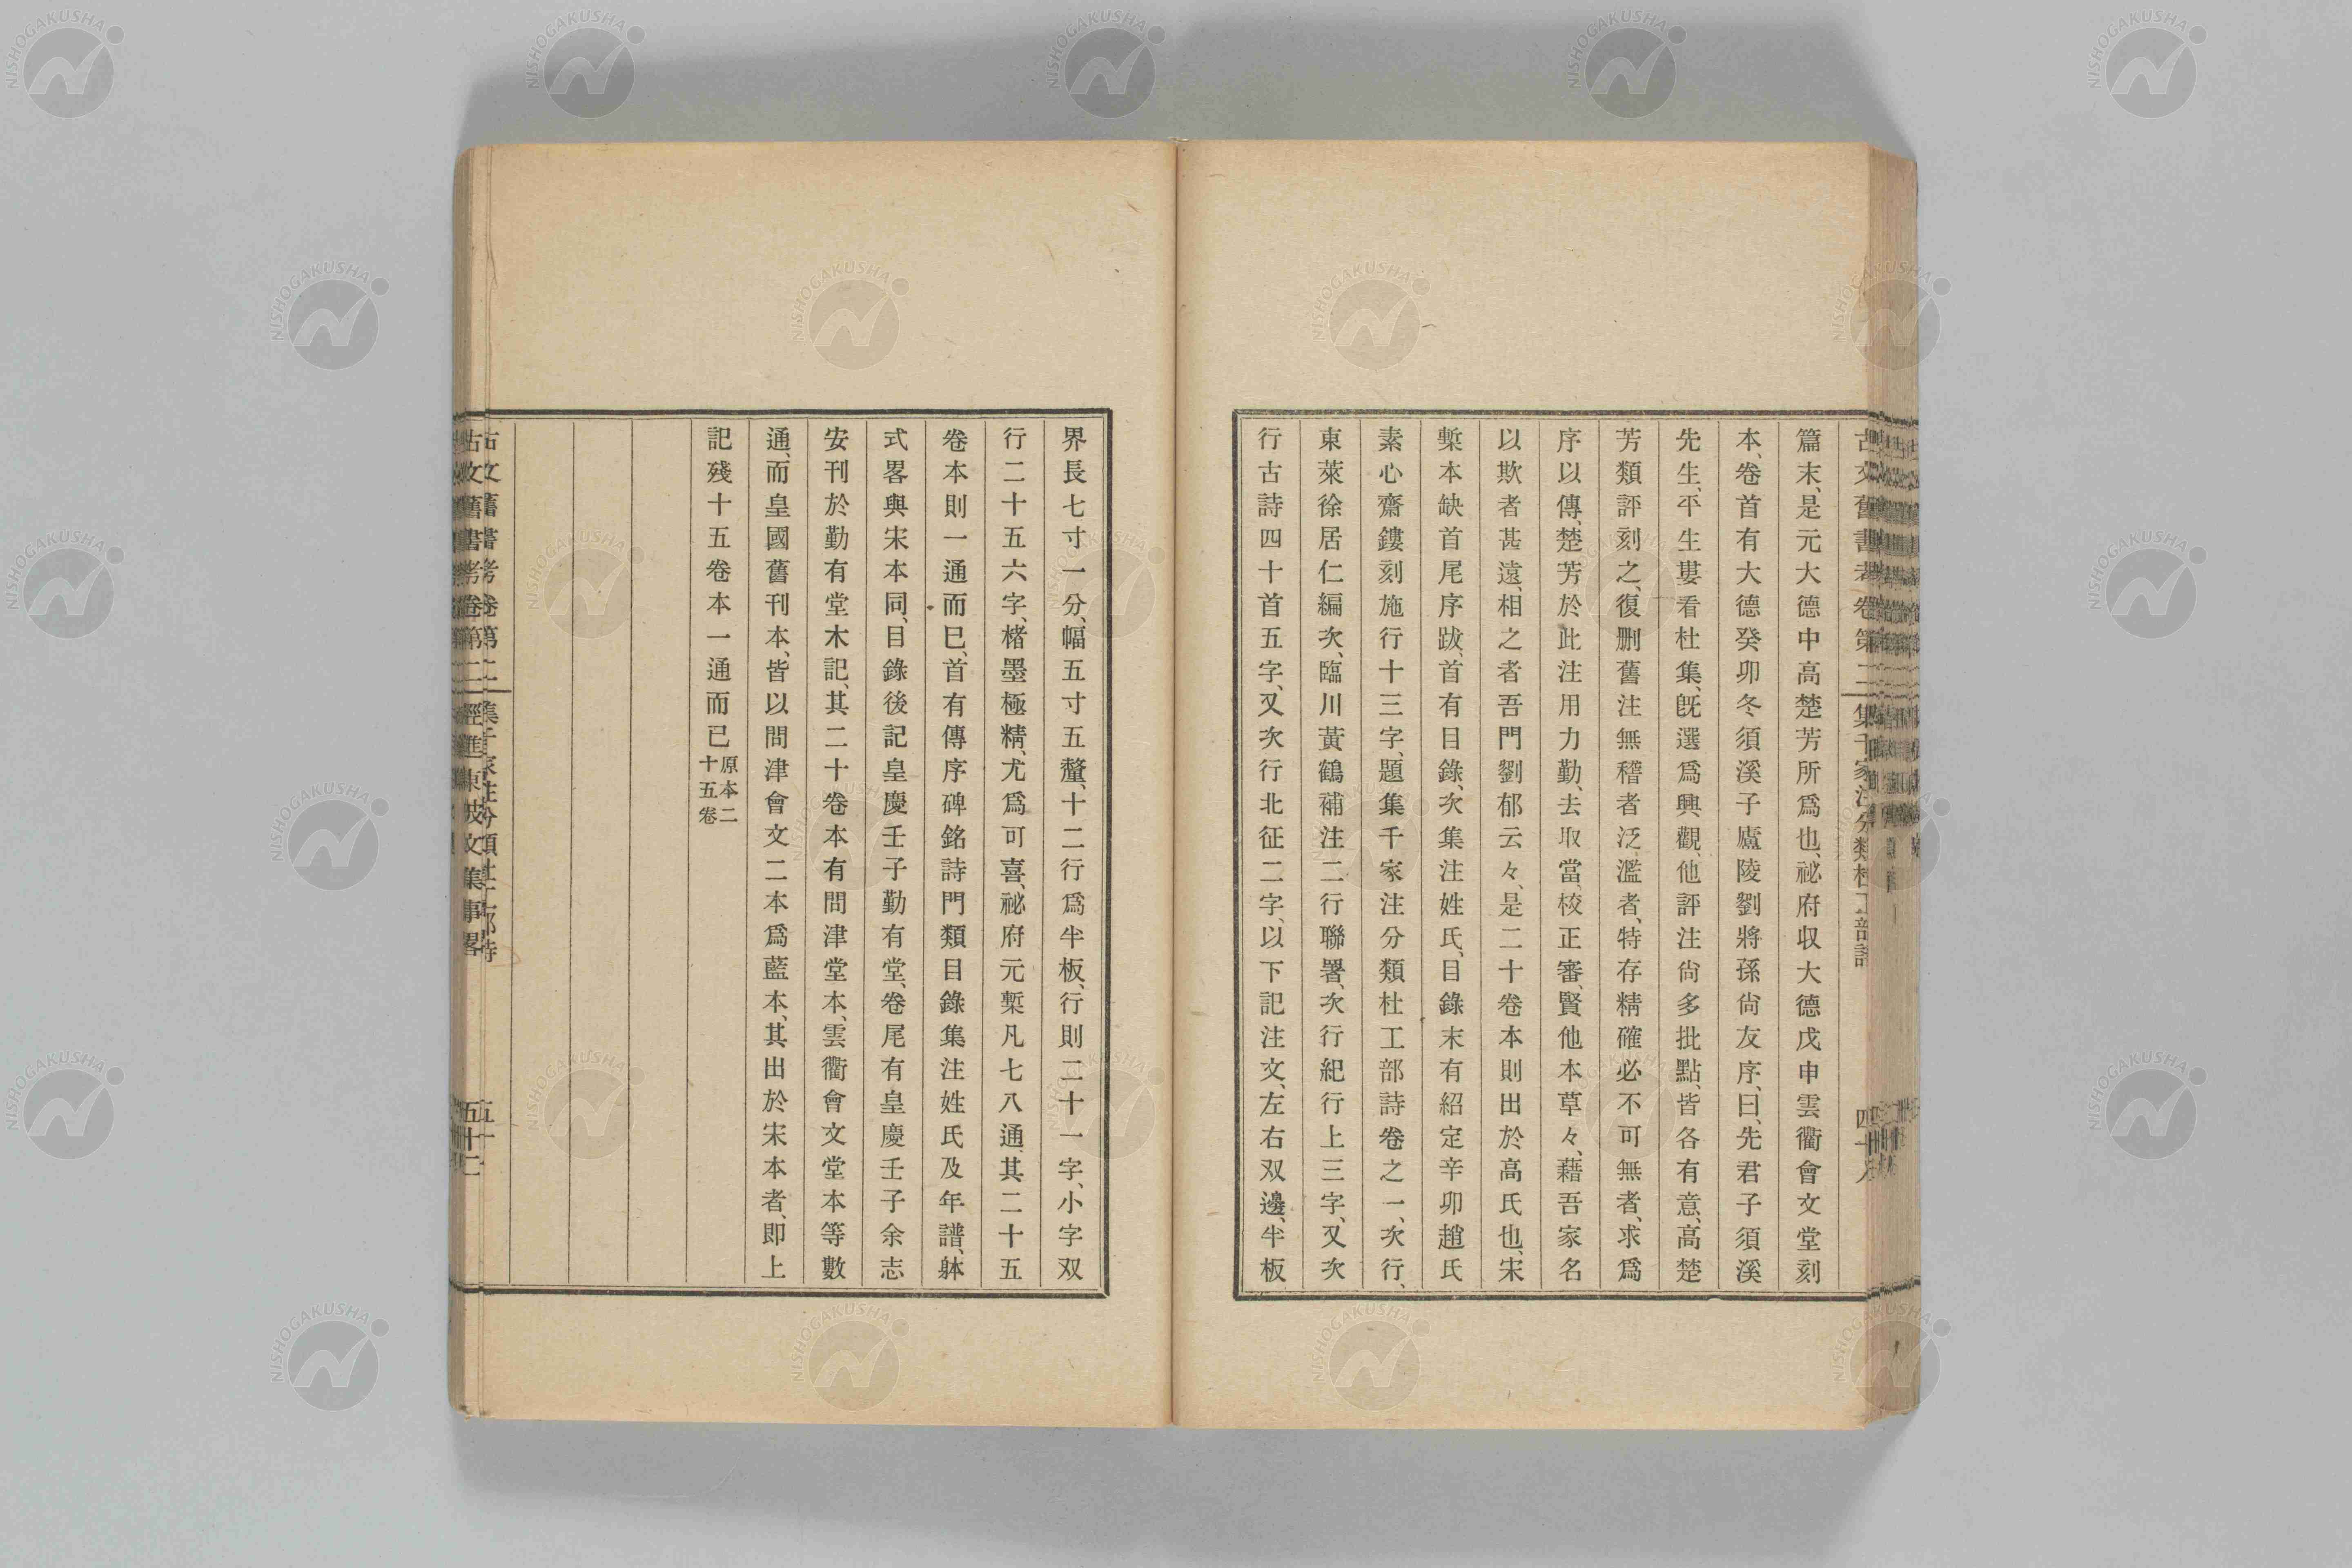 古文舊書考卷第二 集千家注分類杜工部詩
篇末、是元大德中高楚芳所爲也、祕府収大德戊申雲衢會文堂刻
本、卷首有大德癸卯冬須溪子廬陵劉將孫尙友序、曰、先君子須溪
先生、平生婁看杜集、旣選爲興觀、他評注尙多批點、皆各有意、高楚
芳類評刻之、復删舊注無稽者泛濫者、特存精確必不可無者、求爲
序以傳、楚芳於此注用力勤、去取當、校正審、賢他本草々、藉吾家名
以欺者甚遠、相之者吾門劉郁云々、是二十卷本則出於高氏也、宋
槧本缺首尾序跋、首有目錄、次集注姓氏、目錄末有紹定辛卯趙氏
素心齋鏤刻施行十三字、題集千家注分類杜工部詩卷之一、次行、
東萊徐居仁編次、臨川黃鶴補注二行聯署、次行紀行上三字、又次
行古詩四十首五字、又次行北征二字、以下記注文、左右双邊、半板
界長七寸一分、幅五寸五釐、十二行爲半板、行則二十一字、小字双
行二十五六字、楮墨極精、尤爲可喜、祕府元槧凡七八通、其二十五
卷本則一通而已、首有傳序碑銘詩門類目錄集注姓氏及年譜、躰
式畧與宋本同、目錄後記皇慶壬子勤有堂、卷尾有皇慶壬子余志
安刊於勤有堂木記、其二十卷本有問津堂本、雲衢會文堂本等數
通、而皇國舊刊本、皆以問津會文二本爲藍本、其出於宋本者、即上
記殘十五卷本一通而已 原本二十五卷
古文舊書考卷第二 經進東坡文集事畧 五十二
NISHOGAKUSHA